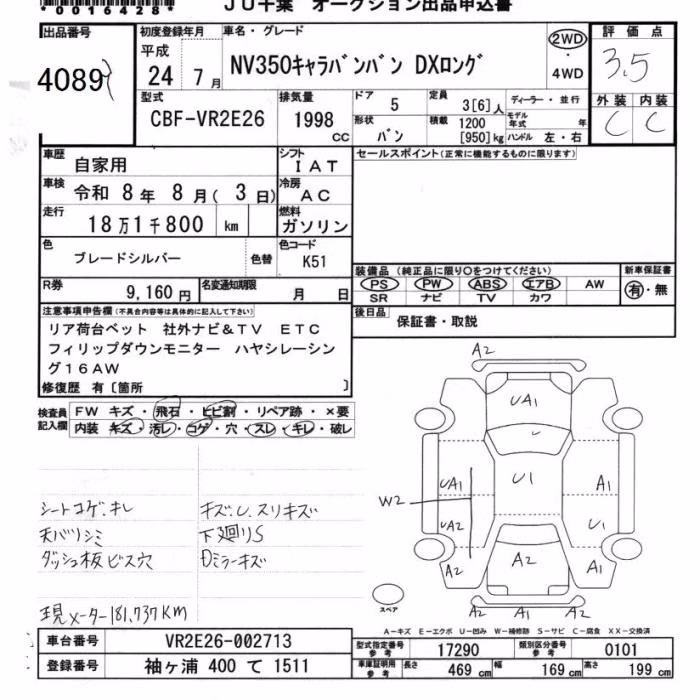 *0016428*
JU千葉 オークション出品申込書
出品番号
4089
初度登録年月
平成
24年 7月
車名・グレード
NV350キャラバンバン DXロング
2WD
・
4WD
評価点
3.5
型式
CBF-VR2E26
排気量
1998 CC
ドア 5
定員 3[6]人
ディーラー・並行
形状 バン
積載 1200 [950]kg
モデル年式 年
ハンドル 左・右
外装 内装
C C
車歴 自家用
シフト IAT
セールスポイント(正常に機能するものに限ります)
車検 令和 8年 8月( 3日)
冷房 AC
走行 18万1千800 km
燃料 ガソリン
色 ブレードシルバー 色替
色コード K51
装備品 (純正品に限り○をつけてください)
PS PW ABS エアB AW
SR ナビ TV カワ
新車保証書
有・無
R券 9,160円
名変通知期限 月 日
後日品 保証書・取説
注意事項申告欄(不具合内容等は具体的に記入して下さい)
リア荷台ベット 社外ナビ&TV ETC
フィリップダウンモニター ハヤシレーシン
グ16AW
修復歴 有〔箇所 〕
検査員記入欄
FW キズ・飛石・ヒビ割・リペア跡・×要
内装 キズ・汚レ・コゲ・穴・スレ・キレ・破レ
シートコゲ.キレ キズ.U.スリキズ
天バリシミ 下廻りS
ダッシュ板ビス穴 Dミラーキズ
現メーター181,737KM
A2
UA1
UA1 U1 A1
W2
UA2 U1
A2 A2 A1
A2 A1 A1
スペア
A-キズ E-エクボ U-凹み W-補修跡 S-サビ C-腐食 XX-交換済
車台番号 VR2E26-002713
登録番号 袖ヶ浦 400 て 1511
型式指定番号 参考 17290
類別区分番号 参考 0101
車庫証明用 参考 長さ 469 cm 幅 169 cm 高さ 199 cm